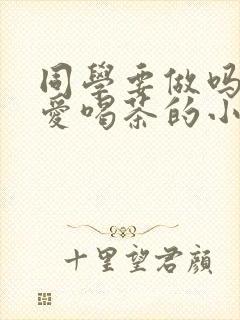 同學要做吗
愛喝茶的小
十里望君顔